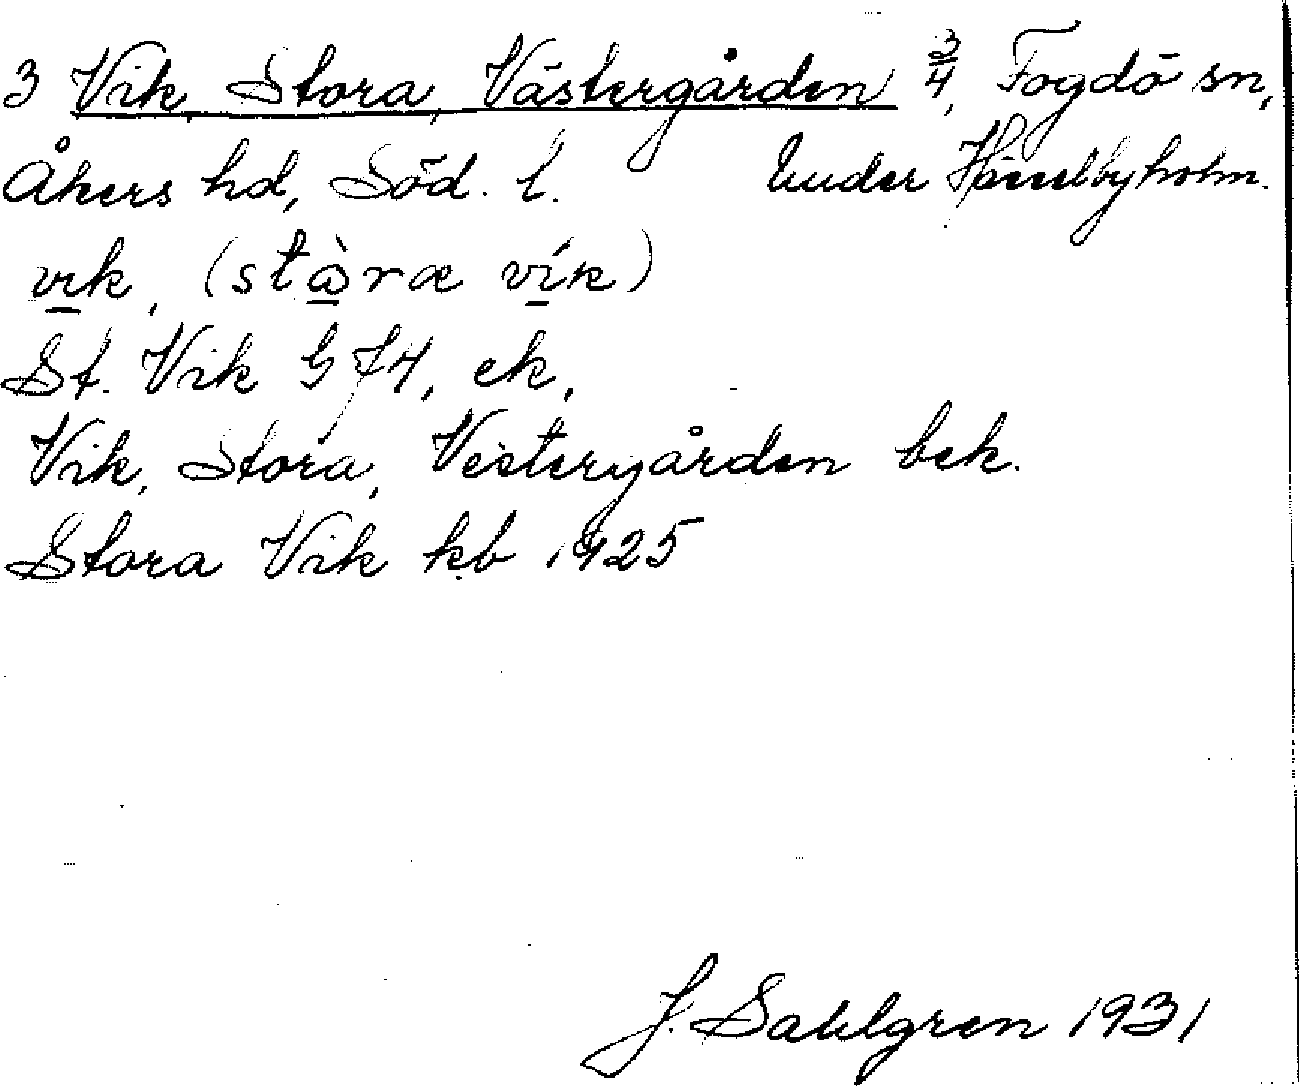 3 Vik, Stora, Västergården 3/4, Fogdö sn,
Åkers hd, Söd. l. Under Hässelbyholm.
vik, (stòræ vík)
St. Vik G J4, ek,
Vik, Stora, Vestergården bek.
Stora Vik kb 1925
J. Sahlgren 1931